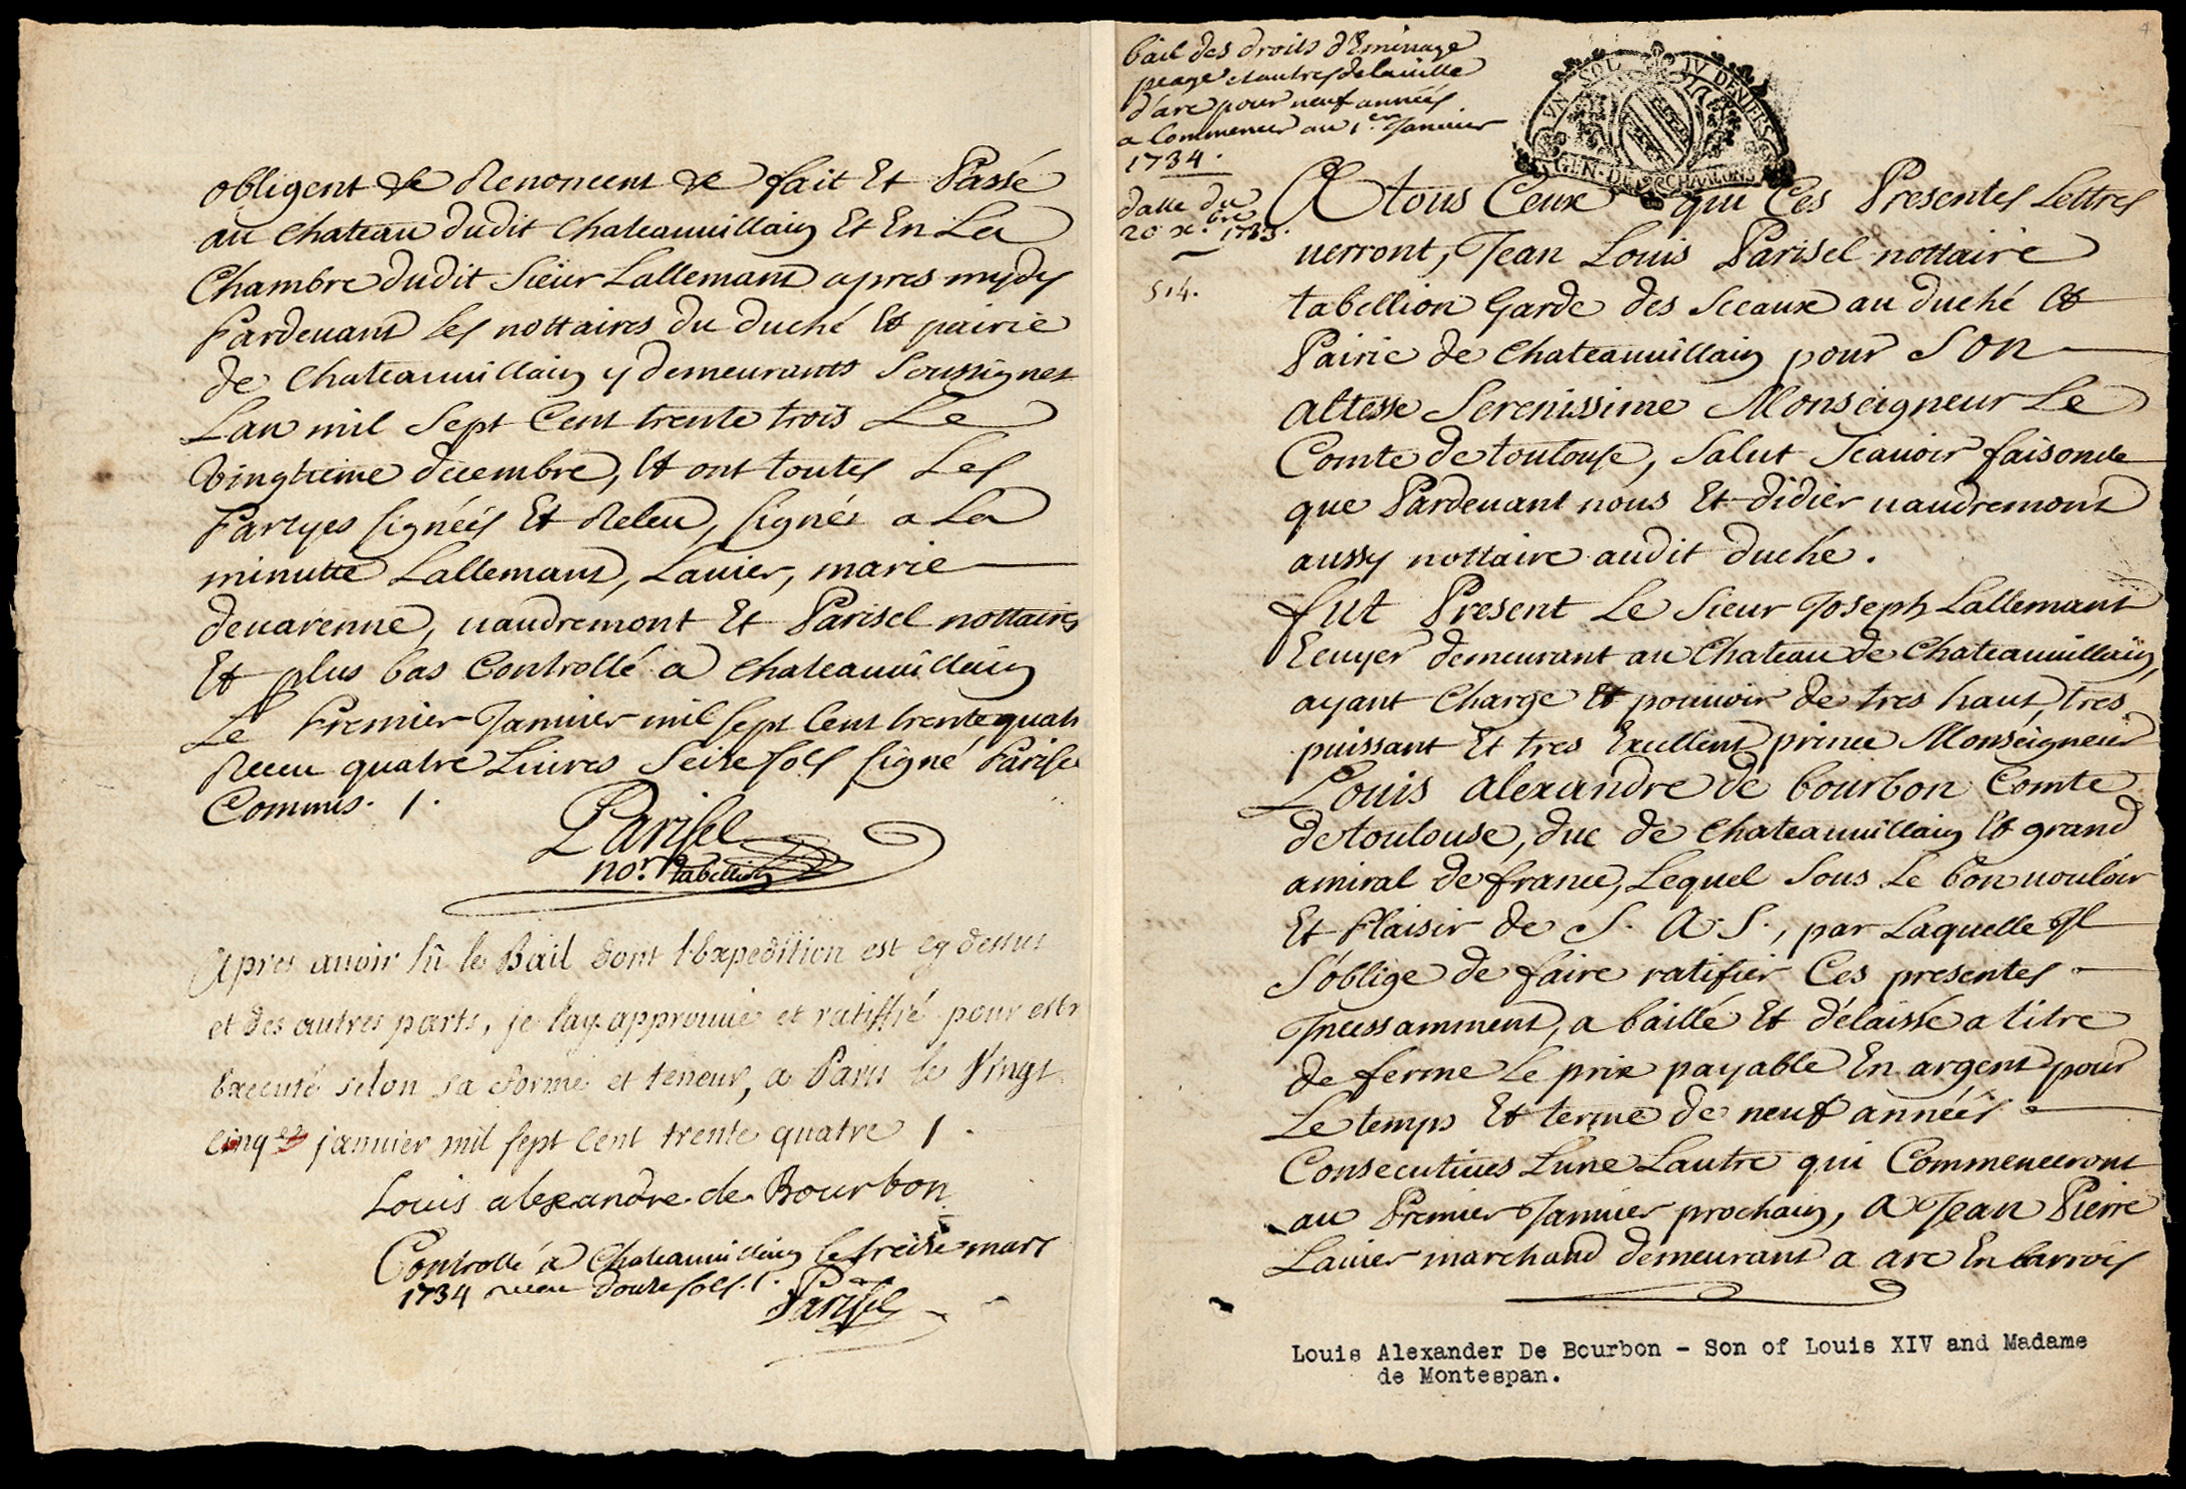 obligent &c Renoncent &c fait Et Passé
au chateau dudit Chateauuillain Et En La
Chambre dudit Sieur Lallemant apres mydy
Pardeuant les nottaires du duché Et pairie
de Chateauuillain y demeurants Soussignez
Lan mil Sept Cent trente trois Le
Vingtieme decembre, Et ont toutes Les
Partyes signéés Et Releu, signéz a La
minutte Lallemant, Lauier, marie
deuarenne, uaudremont Et Parisel nottaires
Et plus bas Controllé a chateauuillain
Le Premier Januier mil sept Cent trente quatr
Receu quatre Liures Seize sols signé Parise
Commis. /.
Parisel
nore. tabellion
Apres auoir lû le Bail dont l'Expedition est cy dessus
et des autres parts, je l'ay approuué et ratiffié pour estr
Executé selon sa forme et teneur, a Paris le Vingt
cinq.e januier mil sept cent trente quatre /.
Louis alexandre de Bourbon
Controllé a Chateauuillain le treize mars
1734 receu douze sols. /.
Parisel
bail des droits d'Eminage
peage et autres de la uille
d'arc pour neuf années
a Commencer au 1.er Januier
1734.
datte du
20 Xbre 1733.
514.
UN SOL IV DENIERS
GEN. DE CHAALONS
A tous Ceux qui Ces Presentes Lettres
uerront, Jean Louis Parisel nottaire
tabellion Garde des Sceaux au duché Et
Pairie de Chateauuillain pour Son
altesse Serenissime Monseigneur Le
Comte de toulouse, Salut Scauoir faisons
que Pardeuant nous Et didier uaudremont
aussy nottaire audit duché.
fut Present Le Sieur Joseph Lallemant
Ecuyer demeurant au Chateau de Chateauuillain,
ayant Charge Et pouuoir de tres haut, tres
puissant Et tres Excellent prince Monseigneur
Louis alexandre de bourbon Comte
de toulouse, duc de Chateauuillain Et grand
amiral de france, Lequel Sous Le bon uouloir
Et Plaisir de S. A. S., par Laquelle Jl
S'oblige de faire ratifier Ces presentes
Jncessamment, a baillé Et délaissé a titre
de ferme Le prix payable En argent pour
Le temps Et terme de neuf années
Consecutiues Lune Lautre qui Commenceront
au Premier Januier prochain, A Jean Pierre
Lauier marchand demeurant a arc En barrois
Louis Alexander De Bourbon - Son of Louis XIV and Madame
de Montespan.